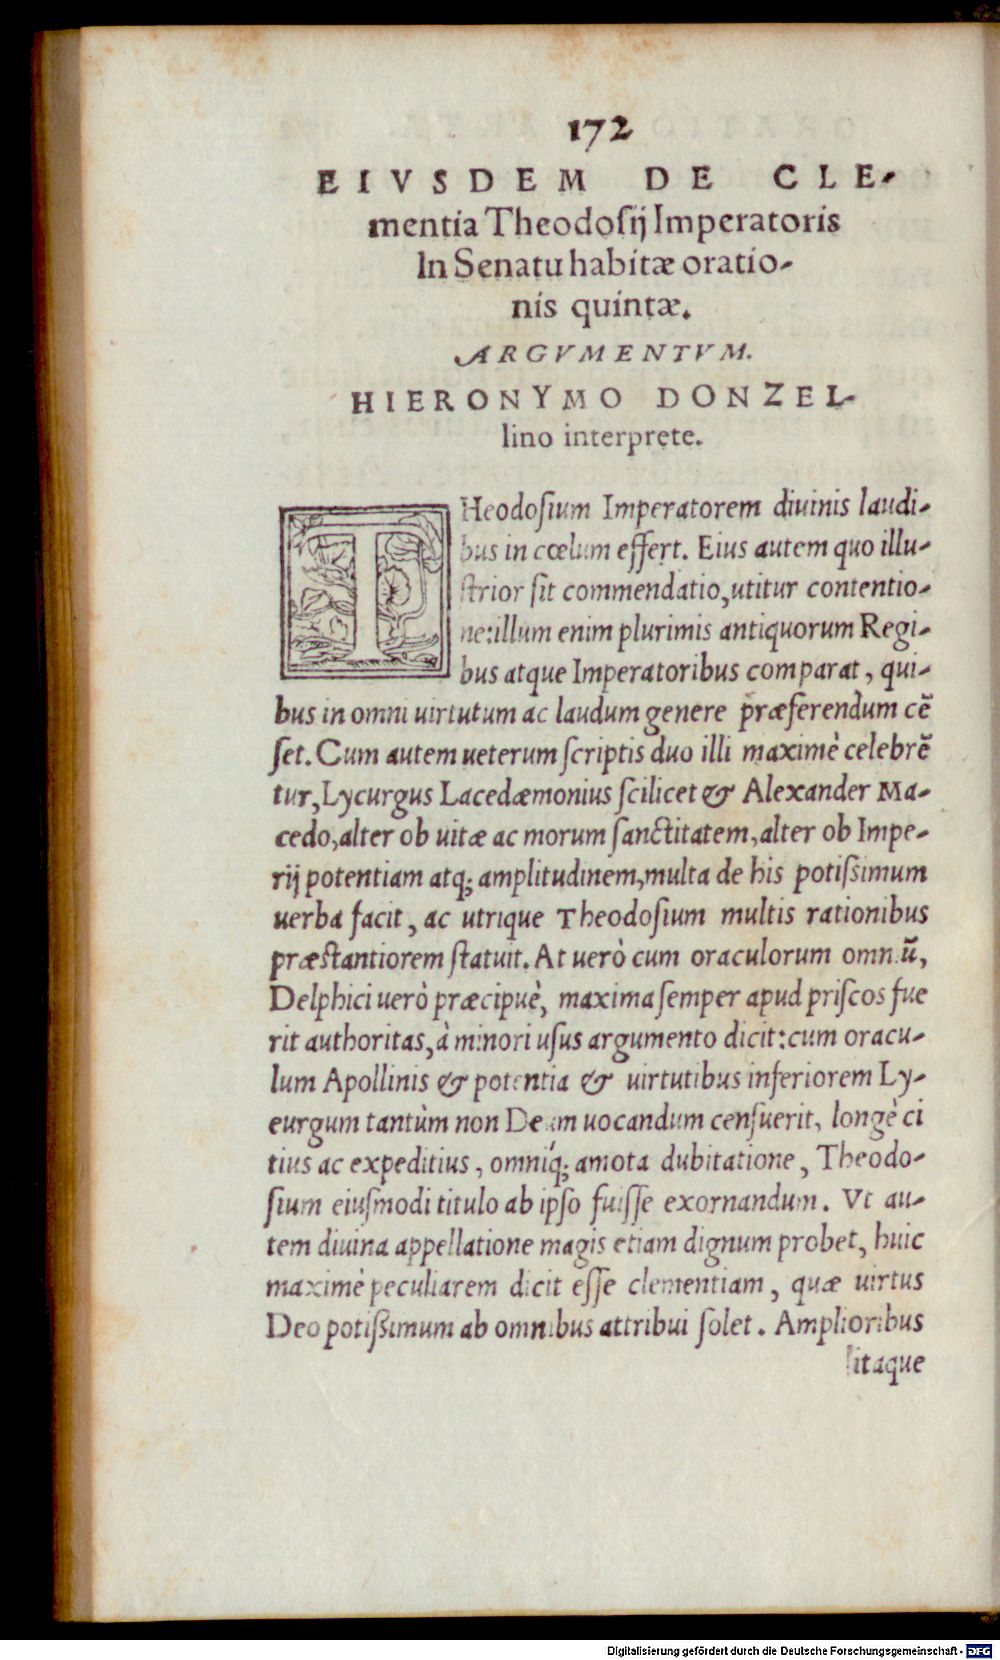 172
EIVSDEM DE CLE-
mentia Theodosij Imperatoris
In Senatu habitæ oratio-
nis quintæ.
ARGVMENTVM.
HIERONYMO DONZEL-
lino interprete.
THeodoſium Imperatorem diuinis laudi-
bus in cœlum effert. Eius autem quo illu-
ſtrior ſit commendatio, utitur contentio-
ne: illum enim plurimis antiquorum Regi-
bus atque Imperatoribus comparat, qui-
bus in omni uirtutum ac laudum genere præferendum cē
ſet. Cum autem ueterum ſcriptis duo illi maximè celebrē
tur, Lycurgus Lacedæmonius ſcilicet & Alexander Ma-
cedo, alter ob uitæ ac morum ſanctitatem, alter ob Impe-
rij potentiam atq; amplitudinem, multa de his potiſsimum
uerba facit, ac utrique Theodoſium multis rationibus
præſtantiorem ſtatuit. At uerò cum oraculorum omniū,
Delphici uerò præcipuè, maxima ſemper apud priſcos fue
rit authoritas, à minori uſus argumento dicit: cum oracu-
lum Apollinis & potentia & uirtutibus inferiorem Ly-
eurgum tantùm non Deum uocandum cenſuerit, longè ci
tius ac expeditius, omniq́; amota dubitatione, Theodo-
ſium eiuſmodi titulo ab ipſo fuiſſe exornandum. Vt au-
tem diuina appellatione magis etiam dignum probet, huic
maximè peculiarem dicit eſſe clementiam, quæ uirtus
Deo potißimum ab omnibus attribui ſolet. Amplioribus
itaque
Digitalisierung gefördert durch die Deutsche Forschungsgemeinschaft - DFG